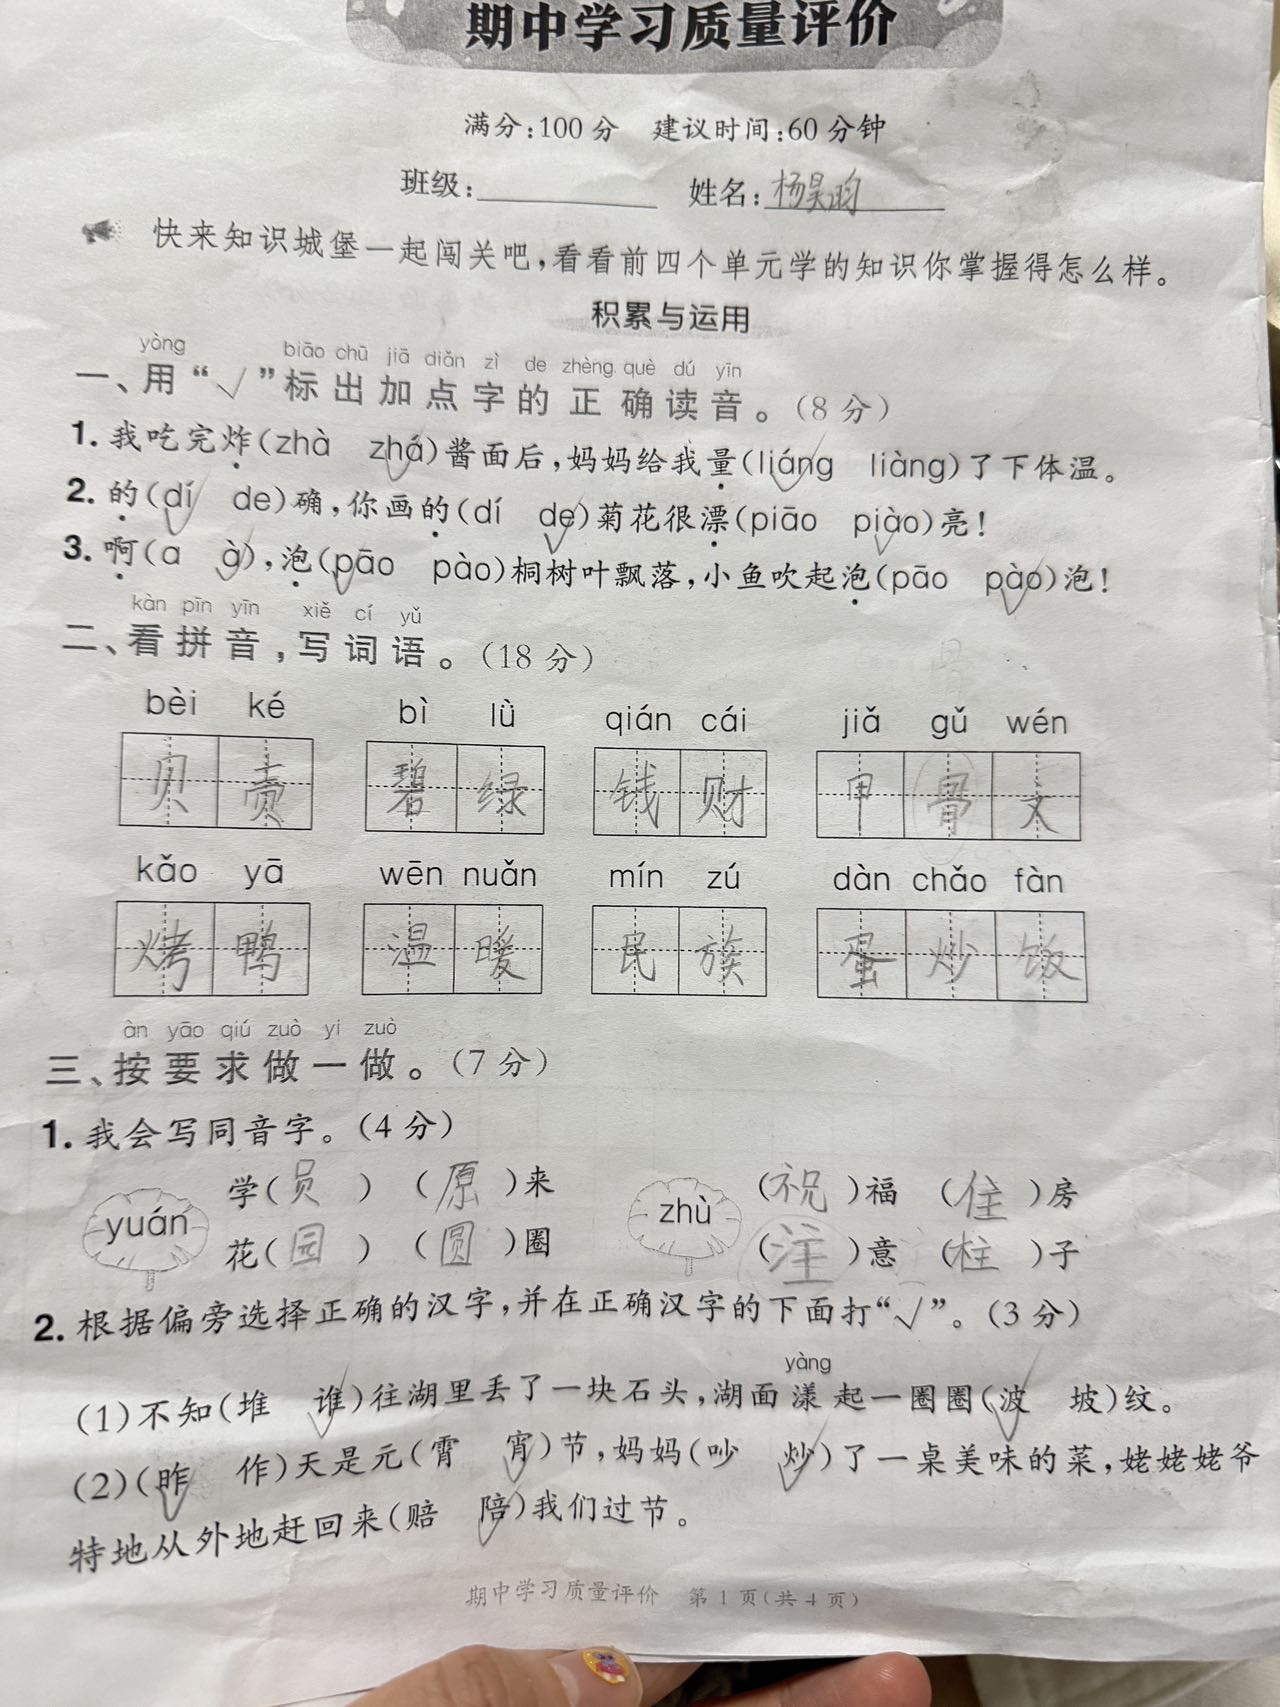 期中学习质量评价
满分:100分 建议时间:60分钟
班级: 姓名:杨昊昀
快来知识城堡一起闯关吧,看看前四个单元学的知识你掌握得怎么样。
积累与运用
yòng biāo chū jiā diǎn zì de zhèng què dú yīn
一、用“√”标出加点字的正确读音。(8分)
1. 我吃完炸(zhà zhá)酱面后,妈妈给我量(liáng liàng)了下体温。
2. 的(dí de)确,你画的(dí de)菊花很漂(piāo piào)亮!
3. 啊(a à),泡(pāo pào)桐树叶飘落,小鱼吹起泡(pāo pào)泡!
kàn pīn yīn xiě cí yǔ
二、看拼音,写词语。(18分)
bèi ké bì lǜ qián cái jiǎ gǔ wén
贝壳 碧绿 钱财 甲骨文
kǎo yā wēn nuǎn mín zú dàn chǎo fàn
烤鸭 温暖 民族 蛋炒饭
àn yāo qiú zuò yi zuò
三、按要求做一做。(7分)
1. 我会写同音字。(4分)
yuán 学(员) (原)来 zhù (祝)福 (住)房
花(园) (圆)圈 (注)意 (柱)子
2. 根据偏旁选择正确的汉字,并在正确汉字的下面打“√”。(3分)
yàng
(1)不知(堆 谁)往湖里丢了一块石头,湖面漾起一圈圈(波 坡)纹。
(2)(昨 作)天是元(霄 宵)节,妈妈(吵 炒)了一桌美味的菜,姥姥姥爷
特地从外地赶回来(赔 陪)我们过节。
期中学习质量评价 第1页(共4页)